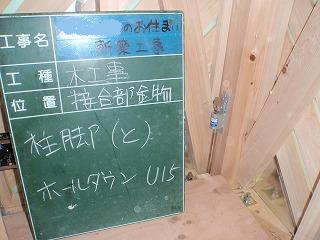 工事名
のお住まい
新築工事
工種 木工事
位置 接合部金物
柱脚(と)
ホールダウン U15